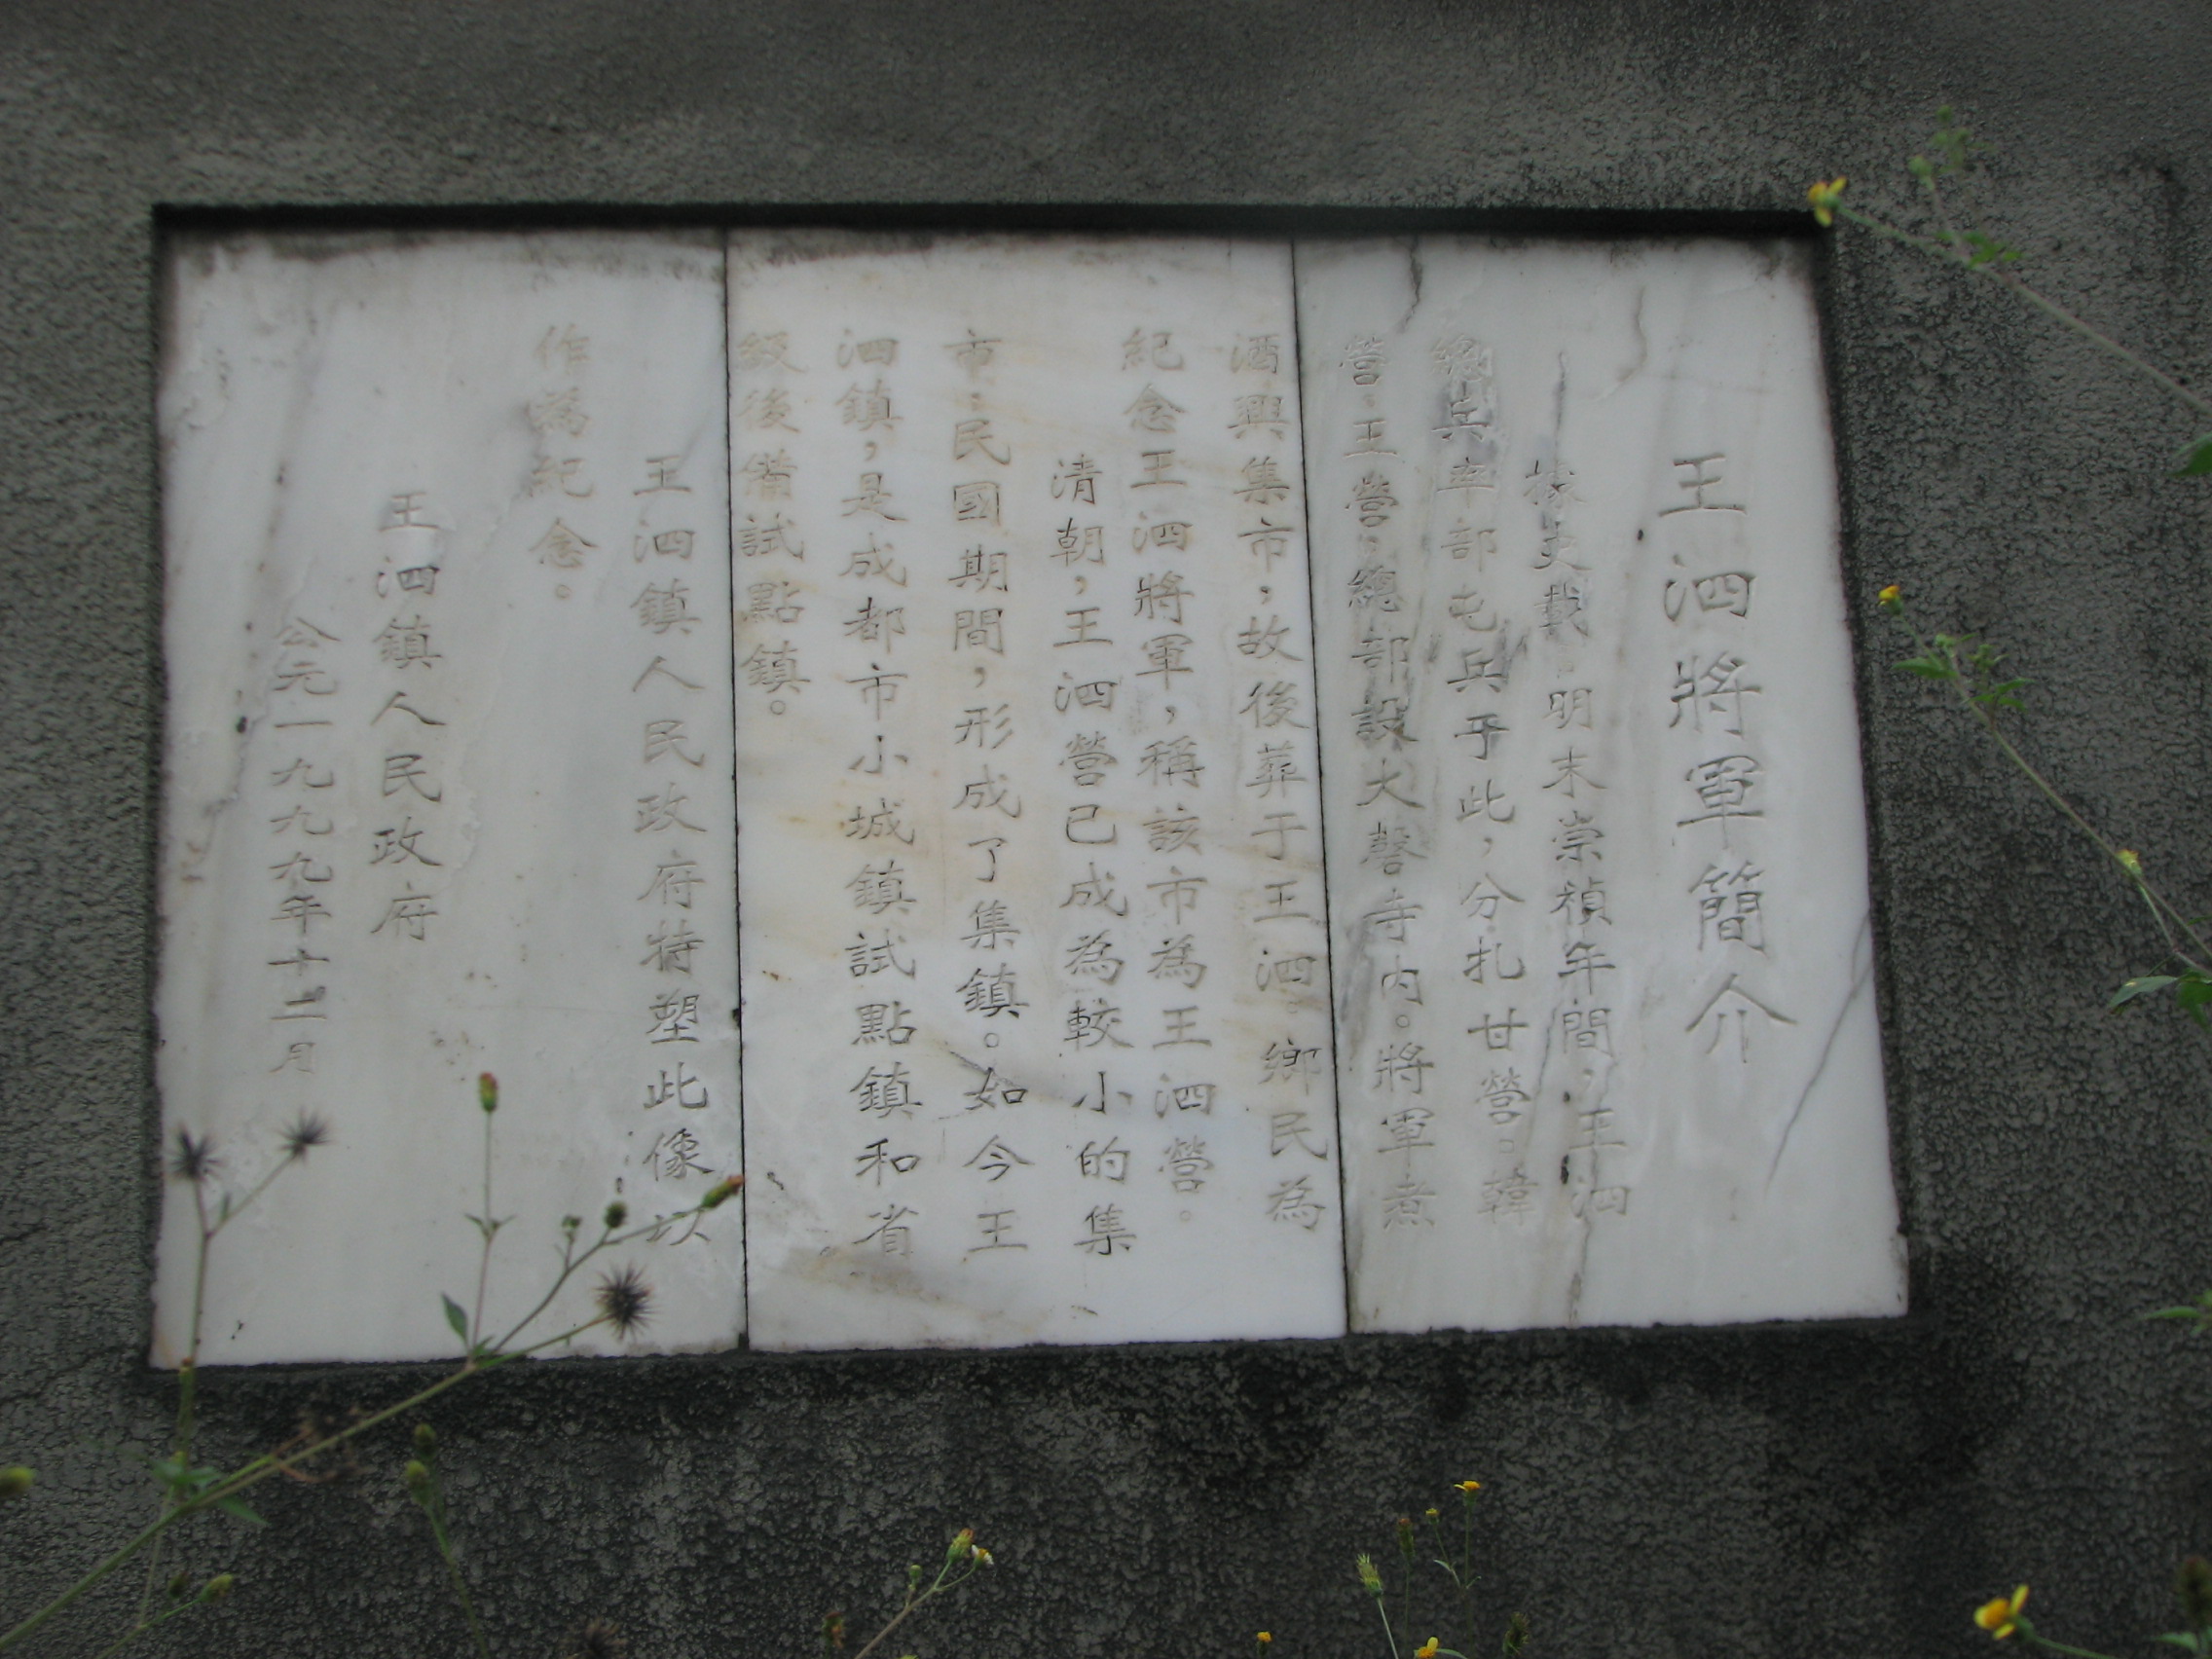 王泗將軍簡介
據史載：明末崇禎年間，王泗
總兵率部屯兵于此，分扎甘營、韓
營、王營，總部設大磬寺内。將軍煮
酒興集市，故後葬于王泗。鄉民為
紀念王泗將軍，稱該市為王泗營。
清朝，王泗營已成為較小的集
市，民國期間，形成了集鎮。如今王
泗鎮，是成都市小城鎮試點鎮和省
級後備試點鎮。
王泗鎮人民政府特塑此像以
作為紀念。
王泗鎮人民政府
公元一九九九年十二月